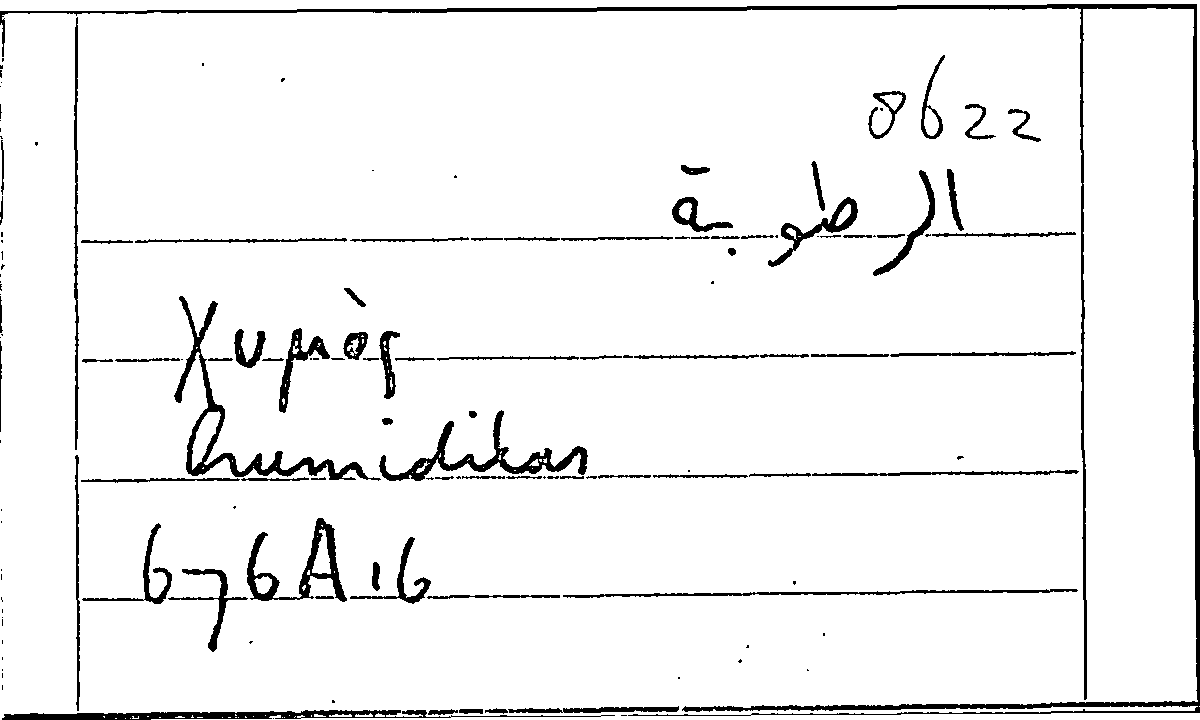 8622
الرطوبة
χυμὸς
humiditas
676A16